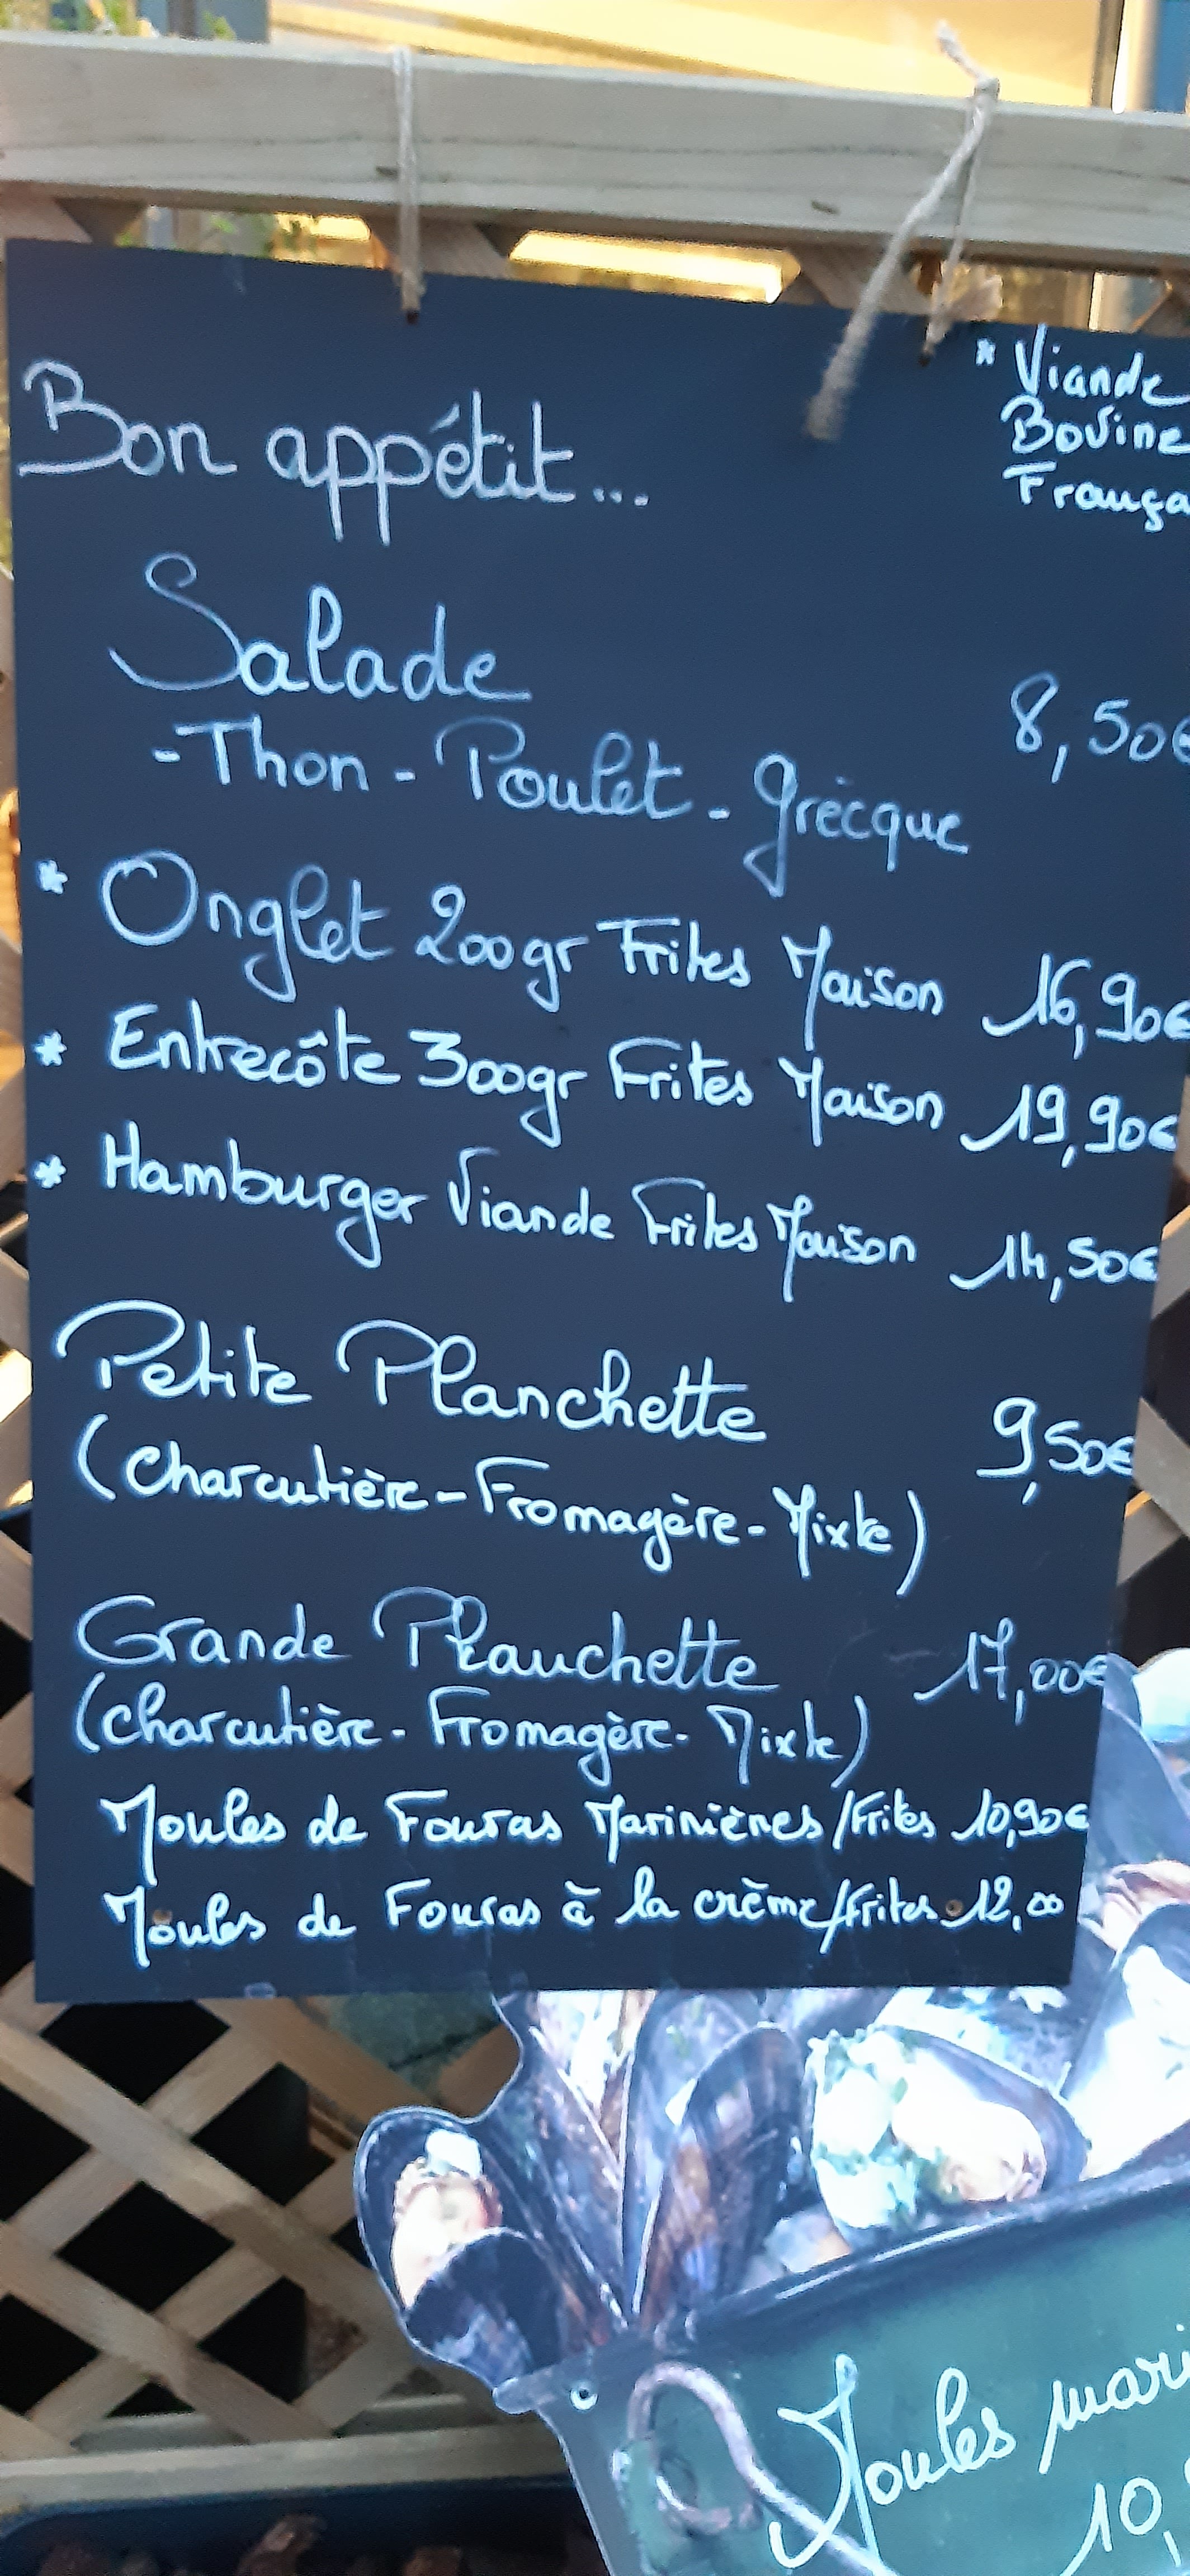 Bon appétit...
* Viande
Bovine
França
Salade
8,50€
-Thon - Poulet - Grècque
* Onglet 200gr Frites Maison 16,90€
* Entrecôte 300gr Frites Maison 19,90€
* Hamburger Viande Frites Maison 14,50€
Petite Planchette 9,50€
(Charcutière - Fromagère - Mixte)
Grande Planchette 17,00€
(Charcutière - Fromagère - Mixte)
Moules de Fouras Marinières/Frites 10,90€
Moules de Fouras à la crème/frites 12,00
Moules mari
10,